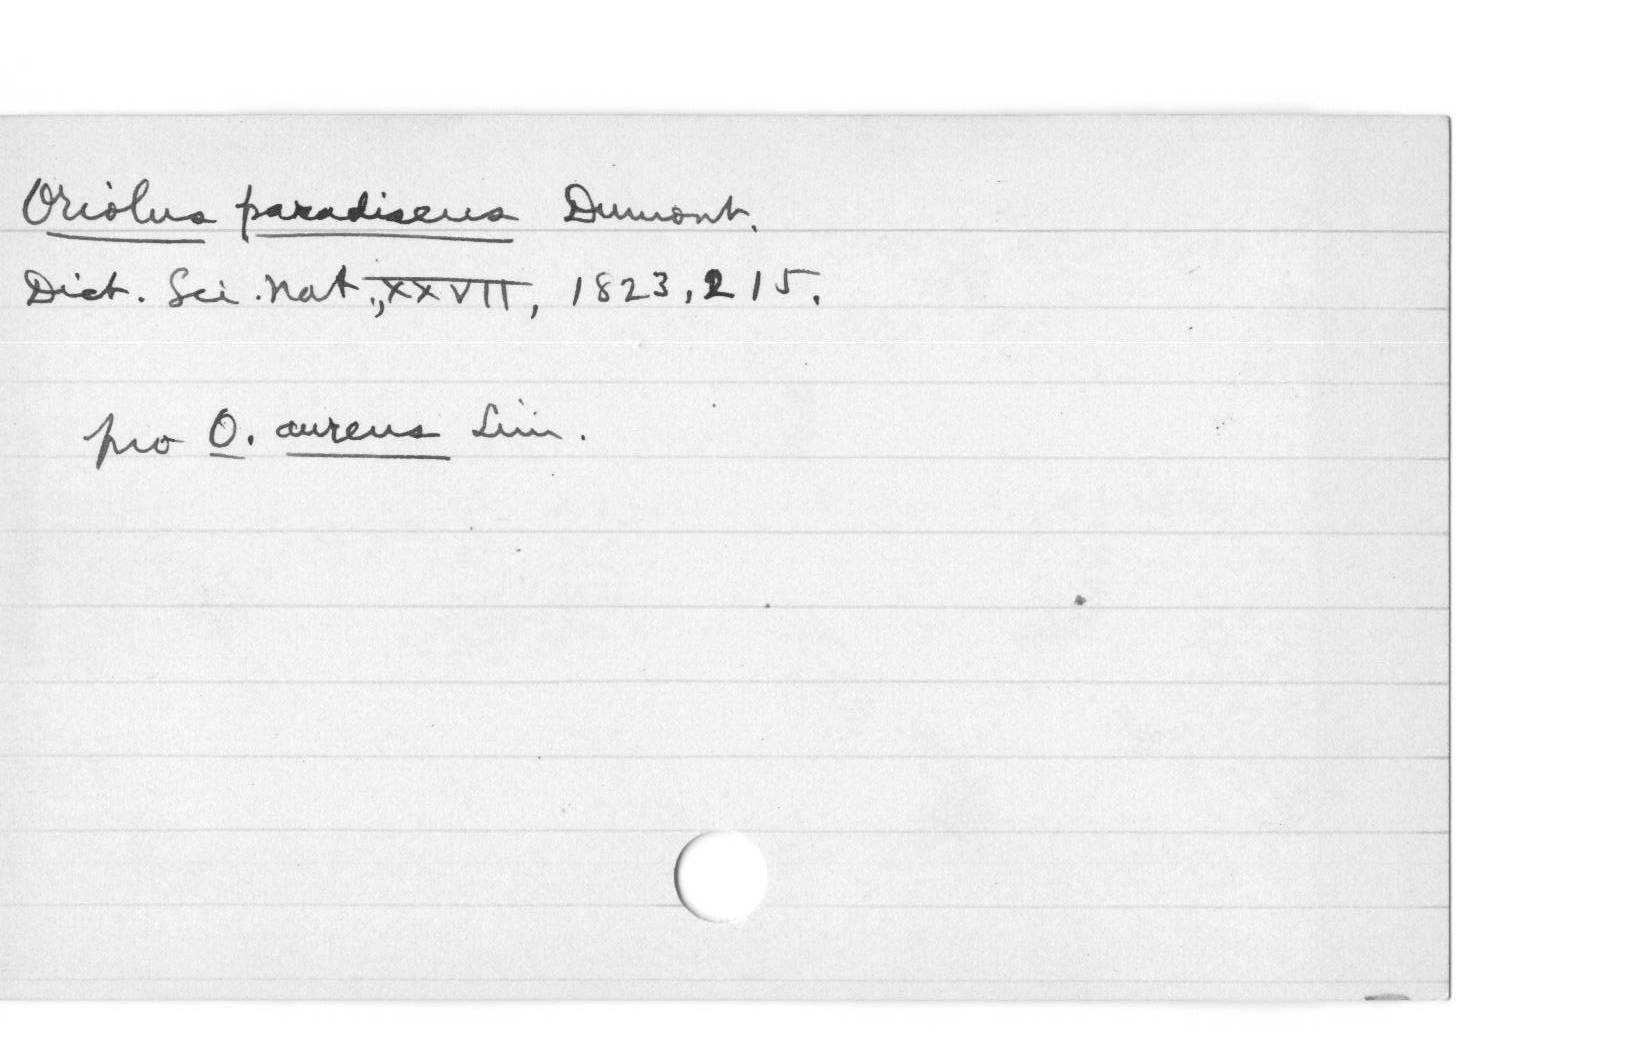 Oriolus paradiseus Dumont.
Dict. Sci. Nat., XXVII, 1823, 215.
pro O. aureus Linn.